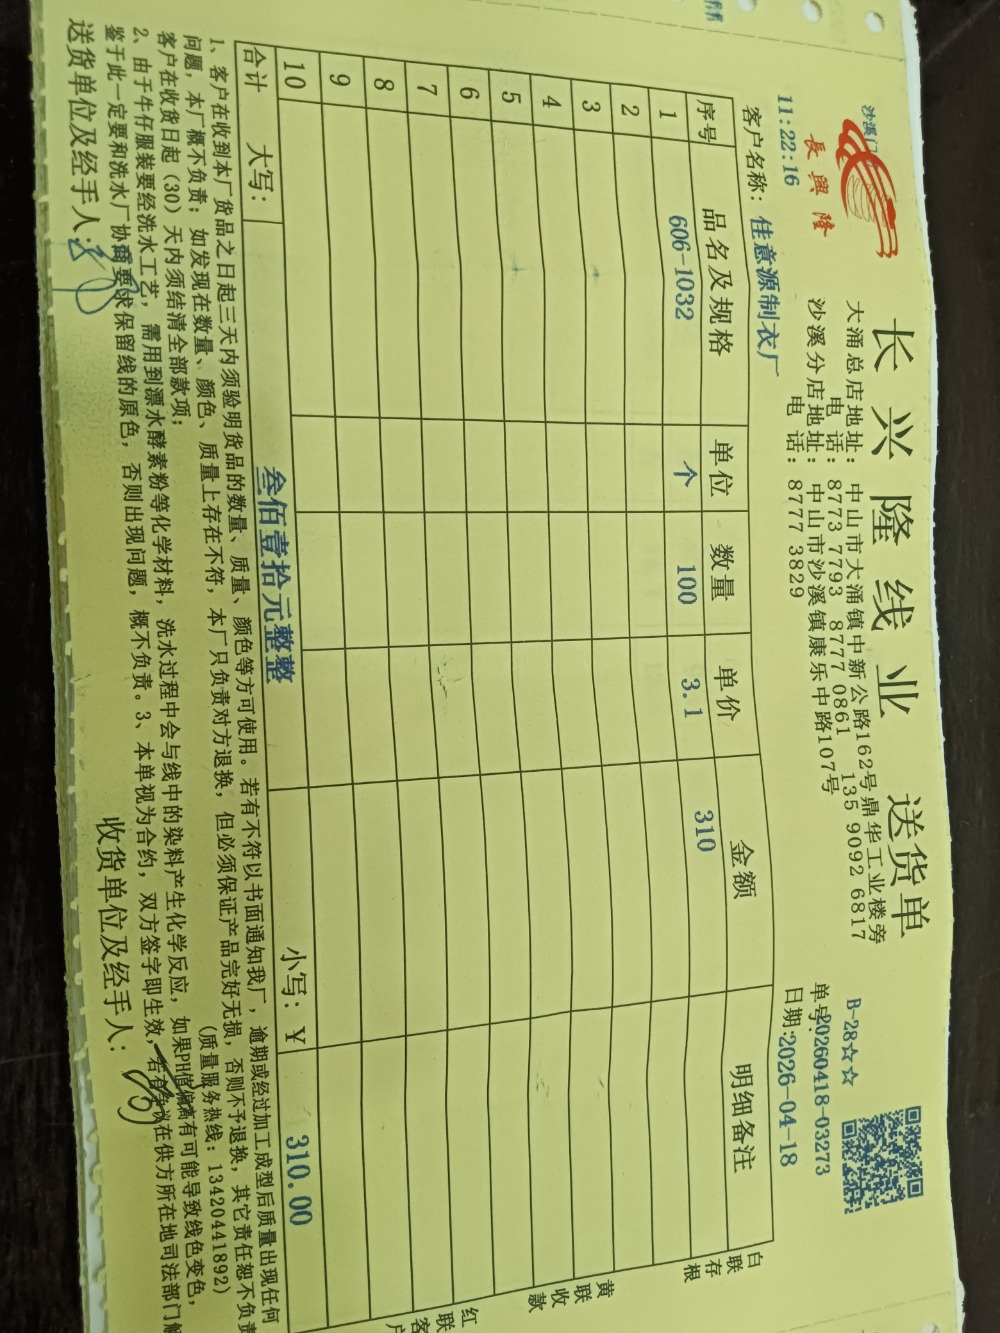 沙溪门
長興隆
长兴隆线业 送货单
大涌总店地址：中山市大涌镇中新公路162号鼎华工业楼旁
电话：8773 7793 8777 0861 135 9092 6817
沙溪分店地址：中山市沙溪镇康乐中路107号
电话：8777 3829
B-28☆☆
单号:20260418-03273
日期:2026-04-18
11:22:16
客户名称：佳意源制衣厂
序号 品名及规格 单位 数量 单价 金额 明细备注
1 606-1032 个 100 3.1 310
2
3
4
5
6
7
8
9
10
合计 大写：叁佰壹拾元整整 小写：￥ 310.00
白联存根
黄联收款
红联客户
1、客户在收到本厂货品之日起三天内须验明货品的数量、质量、颜色等方可使用。若有不符以书面通知我厂，逾期或经过加工成型后质量出现任何
问题，本厂概不负责；如发现在数量、颜色、质量上存在不符，本厂只负责对方退换，但必须保证产品完好无损，否则不予退换，其它责任恕不负责
客户在收货日起（30）天内须结清全部款项； (质量服务热线：13420441892)
2、由于牛仔服装要经洗水工艺，需用到漂水酵素粉等化学材料，洗水过程中会与线中的染料产生化学反应，如果PH值偏高有可能导致线色变色，
鉴于此一定要和洗水厂协商要求保留线的原色，否则出现问题，概不负责。3、本单视为合约，双方签字即生效，若有争议在供方所在地司法部门解
送货单位及经手人： 收货单位及经手人：